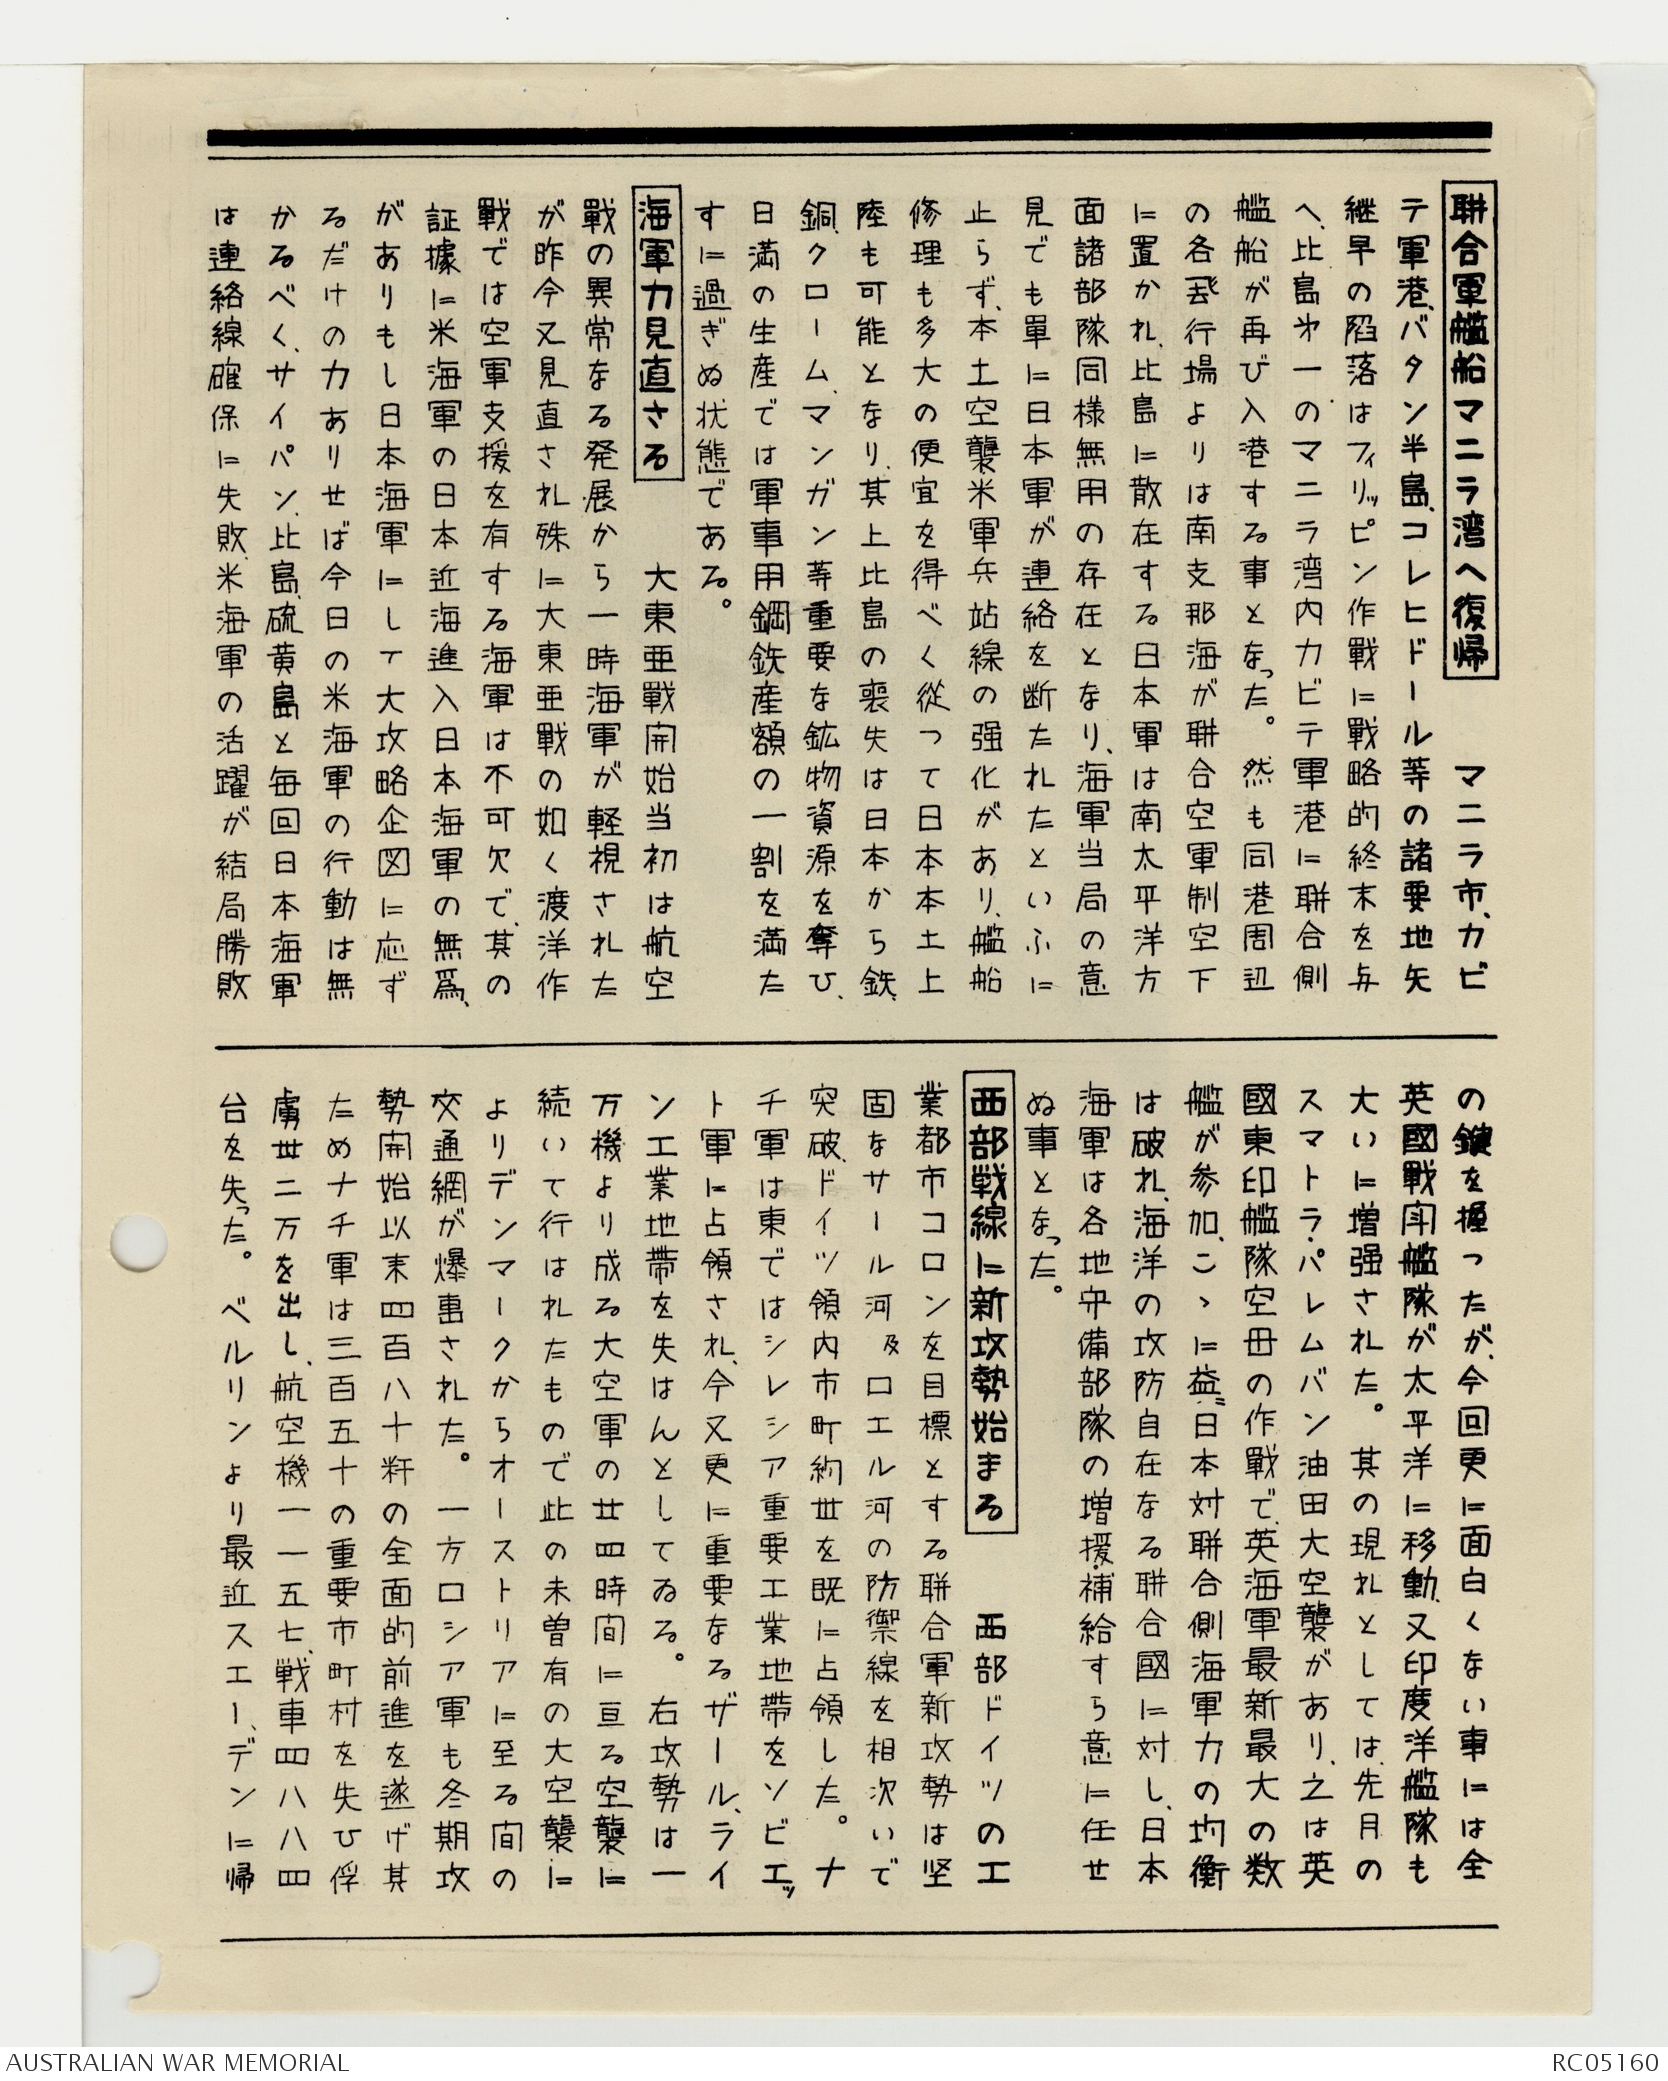 聯合軍艦船マニラ湾へ復帰　マニラ市、カビ
テ軍港、バタン半島、コレヒドール等の諸要地矢
継早の陥落はフィリッピン作戦に戦略的終末を与
へ、比島㐧一のマニラ湾内カビテ軍港に聯合側
艦船が再び入港する事となった。然も同港周辺
の各飛行場よりは南支那海が聯合空軍制空下
に置かれ、比島に散在する日本軍は南太平洋方
面諸部隊同様無用の存在となり、海軍当局の意
見でも単に日本軍が連絡を断たれたといふに
止らず、本土空襲米軍兵站線の强化があり、艦船
修理も多大の便宜を得べく従って日本本土上
陸も可能となり、其上比島の喪失は日本から鉄、
銅、クローム、マンガン等重要な鉱物資源を奪ひ、
日満の生産では軍事用鋼鉄産額の一割を満た
すに過ぎぬ状態である。
海軍力見直さる　大東亜戦開始当初は航空
戰の異常なる発展から一時海軍が軽視された
が昨今又見直され殊に大東亜戰の如く渡洋作
戰では空軍支援を有する海軍は不可欠で、其の
証據に米海軍の日本近海進入日本海軍の無爲、
がありもし日本海軍にして大攻略企図に応ず
るだけの力ありせば今日の米海軍の行動は無
かるべく、サイパン、比島、硫黄島と毎回日本海軍
は連絡線確保に失敗、米海軍の活躍が結局勝敗
の鍵を握ったが、今回更に面白くない事には全
英國戰闘艦隊が太平洋に移動、又印度洋艦隊も
大いに増强された。其の現れとしては、先月の
スマトラ・パレムバン油田大空襲があり、之は英
國東印艦隊空母の作戦で、英海軍最新最大の数
艦が参加、こゝに益〻日本対聯合側海軍力の均衡
は破れ、海洋の攻防自在なる聯合國に対し、日本
海軍は各地守備部隊の増援・補給すら意に任せ
ぬ事となった。
西部戦線に新攻勢始まる　西部ドイツの工
業都市コロンを目標とする聯合軍新攻勢は堅
固なサール河及ロエル河の防禦線を相次いで
突破、ドイツ領内市町約丗を既に占領した。ナ
チ軍は東ではシレシア重要工業地帶をソビエッ
ト軍に占領され、今又更に重要なるザール、ライ
ン工業地帶を失はんとしてゐる。右攻勢は一
万機より成る大空軍の廿四時間に亘る空襲に
続いて行はれたもので此の未曽有の大空襲に
よりデンマークからオーストリアに至る间の
交通網が爆事された。一方ロシア軍も冬期攻
勢開始以来四百八十粁の全面的前進を遂げ其
ためナチ軍は三百五十の重要市町村を失ひ俘
虜丗二万を出し、航空機一一五七、戦車四八八四
台を失った。ベルリンより最近スエーデンに帰